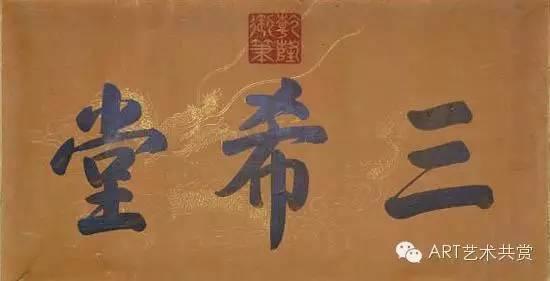 乾隆御筆
三希堂
ART艺术共赏